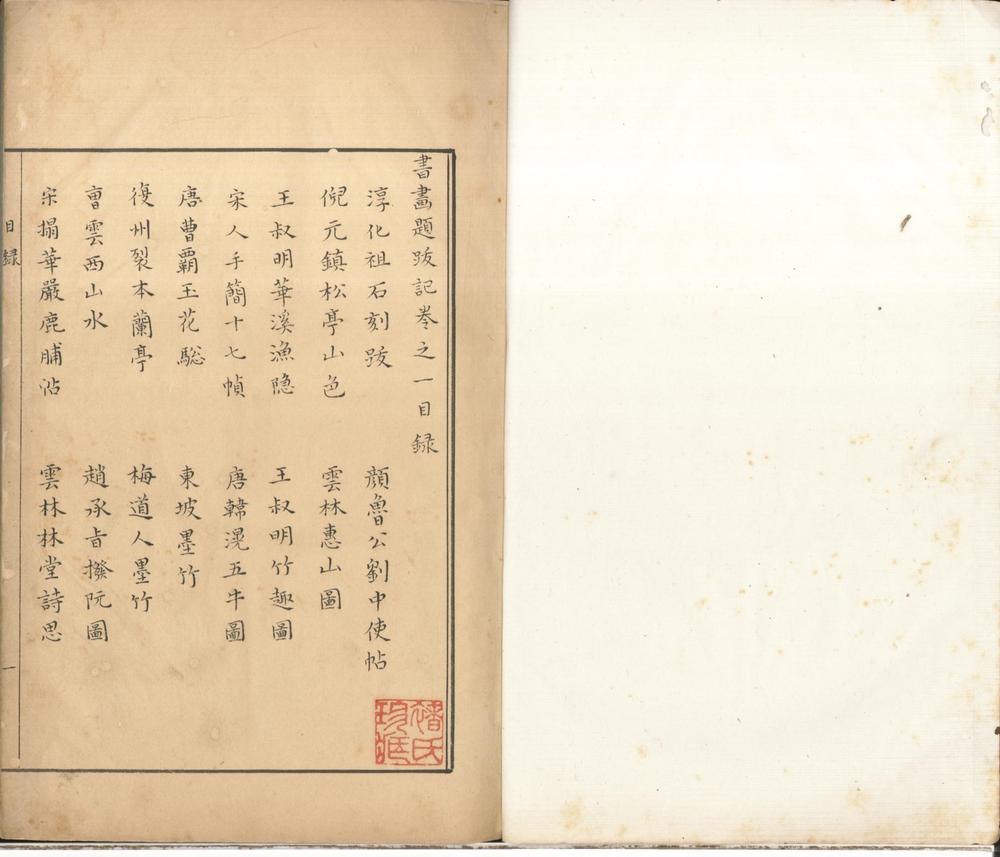 書畫題跋記卷之一目録
淳化祖石刻跋　顏魯公劉中使帖
倪元鎮松亭山色　雲林惠山圖
王叔明華溪漁隐　王叔明竹趣圖
宋人手簡十七幀　唐韓滉五牛圖
唐曹霸玉花驄　東坡墨竹
復州裂本蘭亭　梅道人墨竹
曹雲西山水　趙承旨撥阮圖
宋搨華嚴鹿脯帖　雲林林堂詩思
目録
一